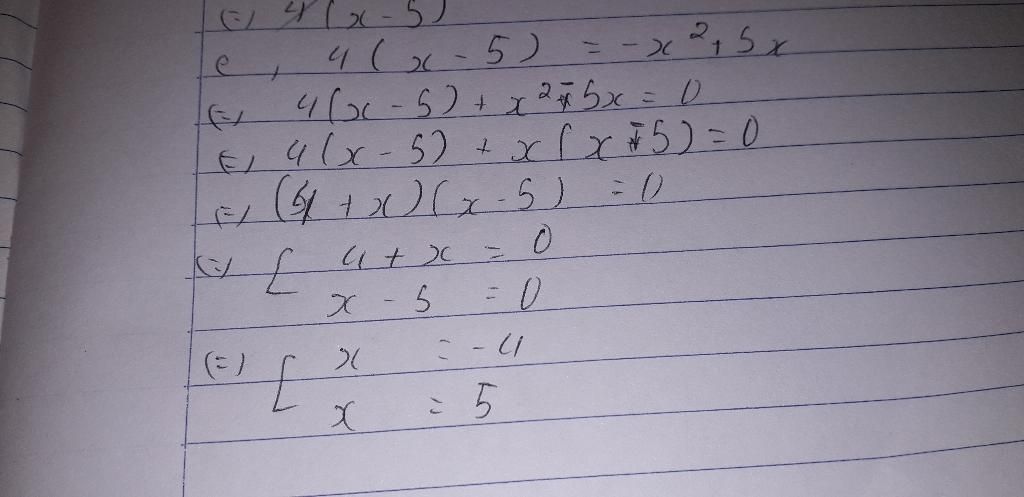 (=) 4(x - 5)
e, 4(x - 5) = -x² + 5x
(=) 4(x - 5) + x² - 5x = 0
(=) 4(x - 5) + x(x - 5) = 0
(=) (4 + x)(x - 5) = 0
(=) [ 4 + x = 0
x - 5 = 0
(=) [ x = -4
x = 5